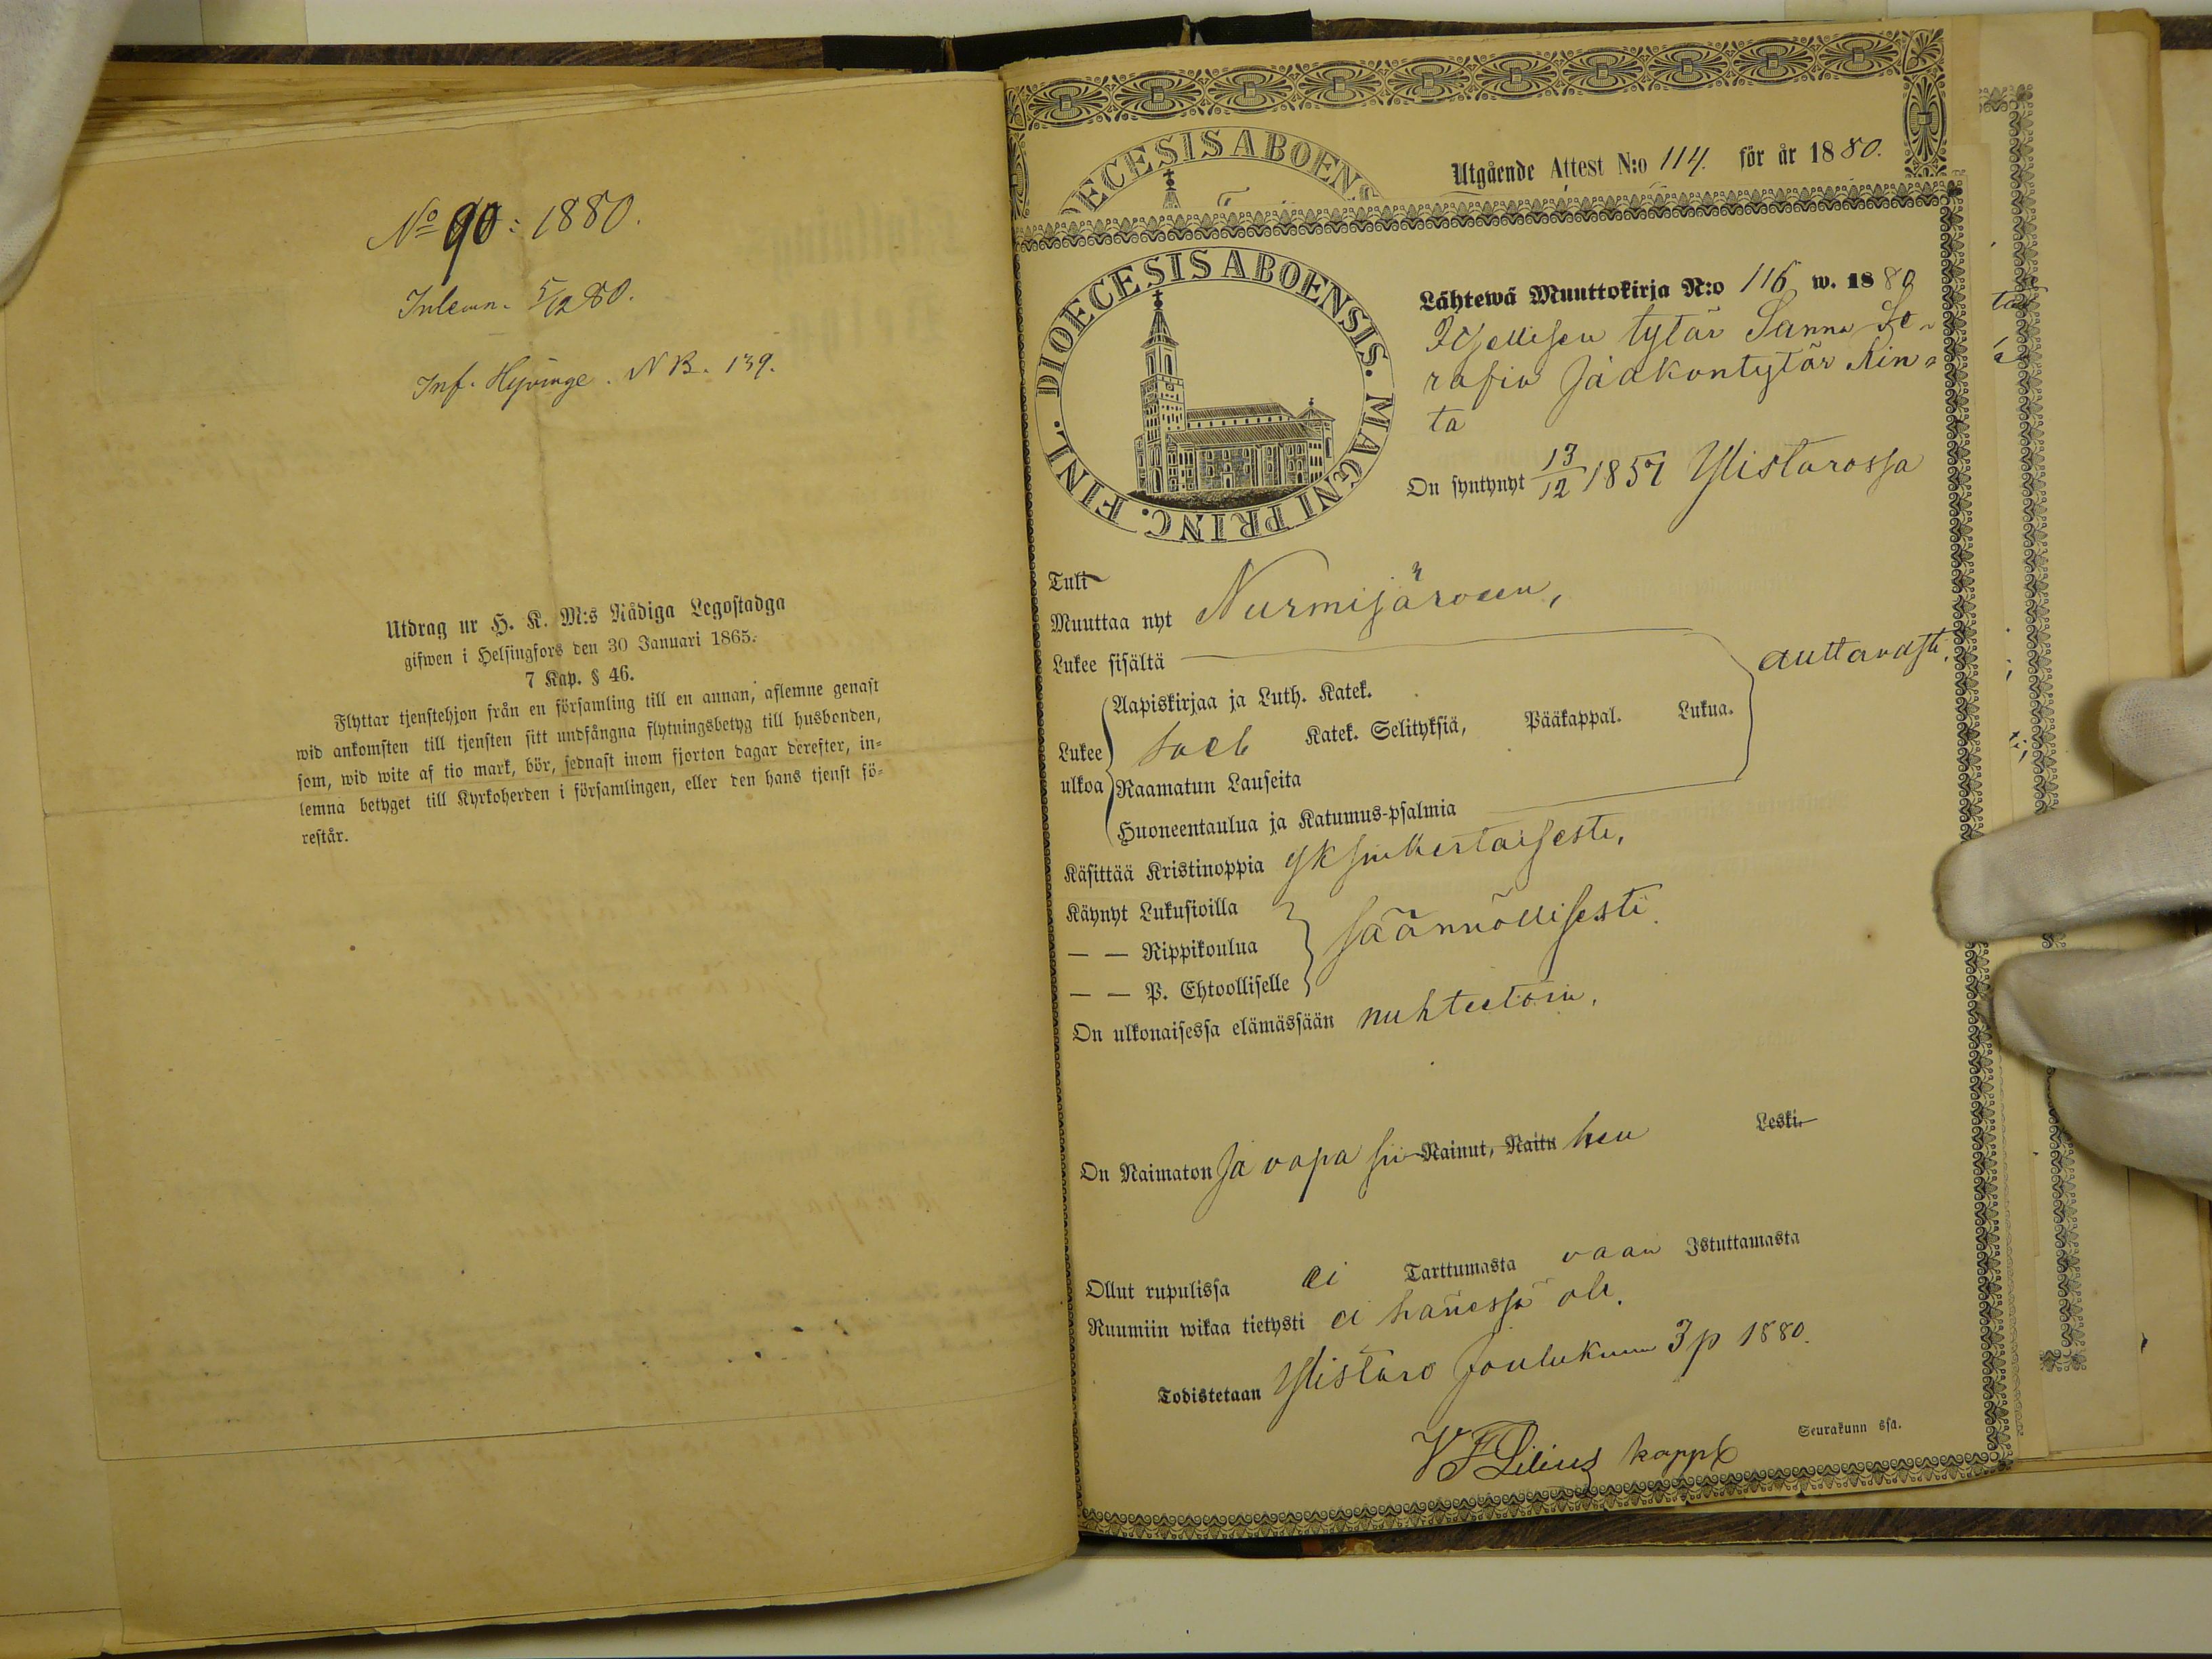 No 90: 1880.
Inlemn. 5/12 80.
Inf. Hyvinge. N B. 139.
Utdrag ur H. K. M:s Nådiga Legostadga
gifwen i Helsingfors den 30 Januari 1865.
7 Kap. § 46.
Flyttar tjenstehjon från en församling till en annan, aflemne genast
wid ankomsten till tjensten sitt undfångna flyttningsbetyg till husbonden,
som, wid wite af tio mark, bör, sednast inom fjorton dagar derefter, in-
lemna betyget till Kyrkoherden i församlingen, eller den hans tjenst fö-
restår.
DIOECESIS ABOENS
Utgående Attest N:o 114. för år 1880.
DIOECESIS ABOENSIS. MAGNI PRINC. FINL.
Lähtewä Muuttokirja N:o 116 w. 1880
Itsellisen tytär Sanna Se-
rafia Jaakontytär Rin-
ta
On syntynyt 13/12 1857 Ylistarossa
Tuli
Muuttaa nyt Nurmijärveen,
Lukee sisältä
auttavasti.
Aapiskirjaa ja Luth. Katek.
Lukee
ulkoa
Katek. Selityksiä, Pääkappal. Lukua.
Raamatun Lauseita
Huoneentaulua ja Katumus-psalmia
Käsittää Kristinoppia yksinkertaisesti.
Käynyt Lukusioilla
— — Rippikoulua säännöllisesti.
— — P. Ehtoolliselle
On ulkonaisessa elämässään nuhteetoin.
On Naimaton ja vapa sii Nainut, Naitu hen Leski.
Ollut rupulissa ei Tarttumasta vaan Istuttamasta
Ruumiin wikaa tietysti ei hänessä ole.
Todistetaan Ylistaro Joulukuun 3 p 1880.
V F Lilius kappl
Seurakunn ssa.